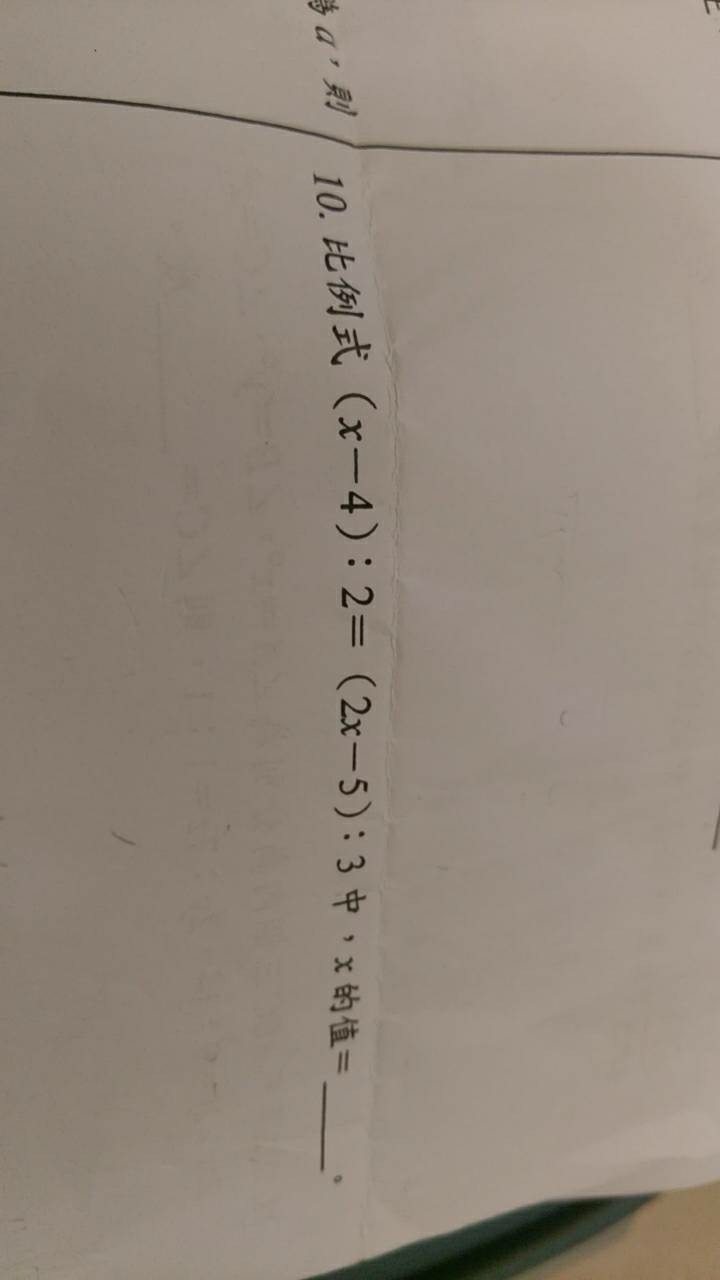 a，則
10. 比例式（x－4）：2＝（2x－5）：3 中，x 的值＝____。